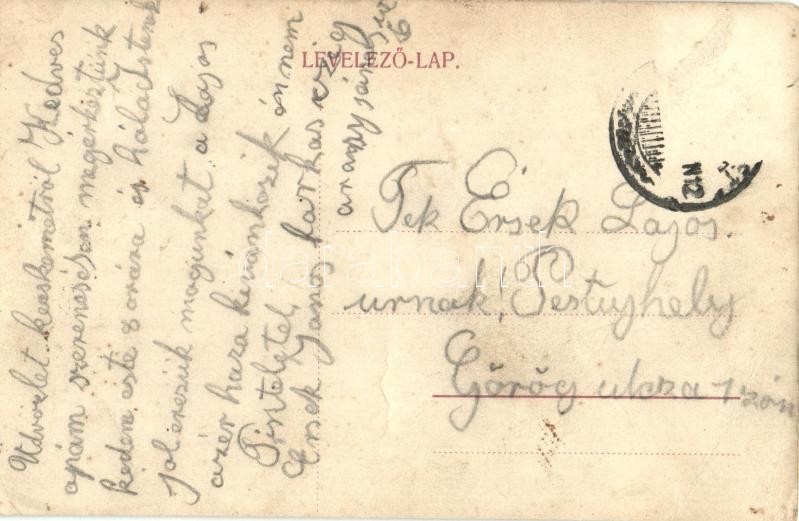 LEVELEZŐ-LAP.
Üdvözlet kecskemétről Kedves
apám szerencsésen megérkeztünk
kedden este 8 orára és hálaistenek
jol érezük magunkat a Lajos
azér haza kivánkozik én nem
Érsek János farkas
arany János
6
Tek Érsek Lajos.
urnak! Pestujhely
Görög utcza 1 szám
darabanth